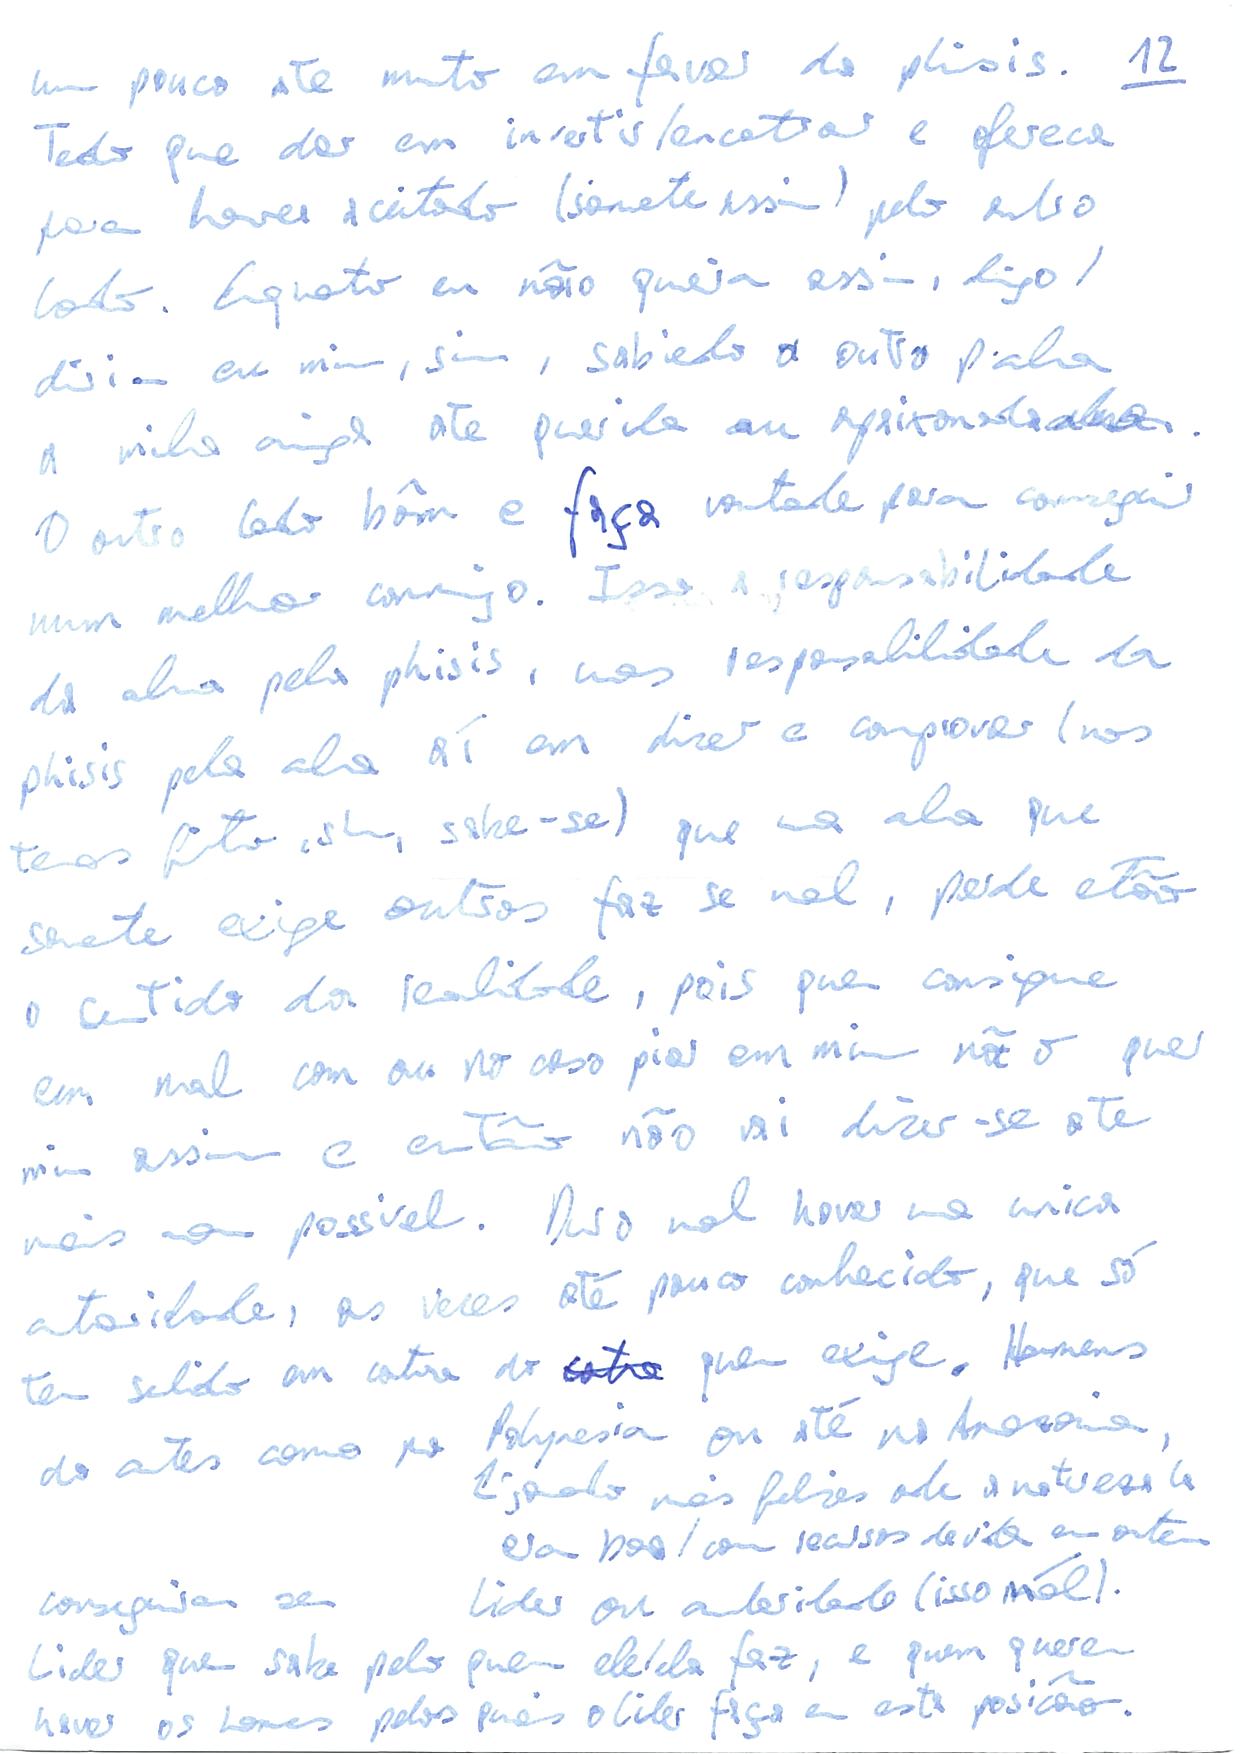 um pouco ate muto em favor da phisis. 12
Tedo que dar em invertir/encotrar e ofereca
para haver aceitado (somete assim) pelo outro
lado. Enquato eu não queria assim, digo/
diria eu mim, sim, sabiedo a outra p. alma
a minha amiga ate querida ou apaixonada alma.
O outro lado bôm e faça vontade para conseguir
num melhor comigo. Isso a responsabilidade
da alma pela phisis, mas responsabilidade da
phisis pela alma aí em dizer e comprovar (nos
temos feito, sim, sabe-se) que uma alma que
somete exige outros faz se mal, perde etão
o centido da realidade, pois quem consigue
em mal com ou no caso pior em mim não quer
mim assim e então não vai dizer-se ate
mais nem possivel. Muio mal haver uma unica
atoridade, as veces até pouco conhecido, que só
tem selido em cotra do cotra quem exige. Homens
do artes como na Polynesia ou até na Amazonia,
ligando mais felizes ode a natureza la
era boa/com recursos de vida em ontem
conseguiram sem lider ou autoridade (isso mál).
Lider quem sabe pelo quem ele/ela faz, e quem querem
haver os homes pelos quais o lider faça em esta posicão.